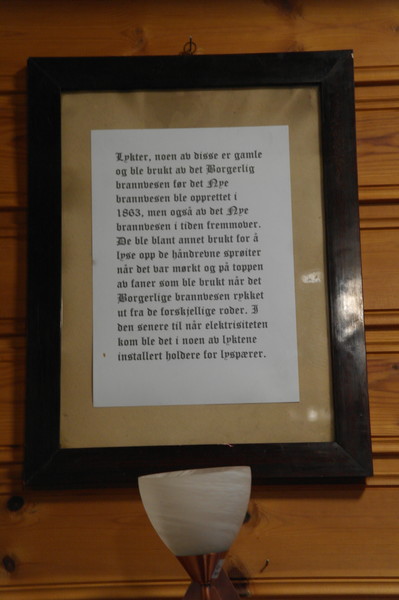 Lykter, noen av disse er gamle
og ble brukt av det Borgerlig
brannvesen før det Nye
brannvesen ble opprettet i
1863, men også av det Nye
brannvesen i tiden fremmover.
De ble blant annet brukt for å
lyse opp de håndrevne sprøiter
når det var mørkt og på toppen
av faner som ble brukt når det
Borgerlige brannvesen rykket
ut fra de forskjellige roder. I
den senere til når elektrisiteten
kom ble det i noen av lyktene
installert holdere for lyspærer.